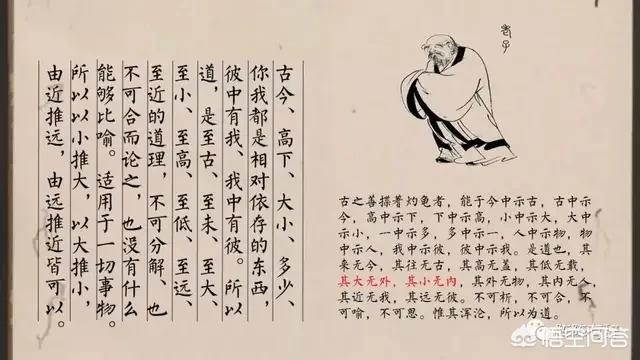 古今、高下、大小、多少、
你我都是相对依存的东西，
彼中有我、我中有彼。所以
道，是至古、至未、至大、
至小、至高、至低、至远、
至近的道理，不可分解、也
不可合而论之，也没有什么
能够比喻。适用于一切事物。
所以以小推大，以大推小，
由近推远，由远推近皆可以。
老子
古之善揲蓍灼龟者，能于今中示古，古中示
今，高中示下，下中示高，小中示大，大中
示小，一中示多，多中示一，人中示物，物
中示人，我中示彼，彼中示我。是道也，其
来无今，其往无古，其高无盖，其低无载，
其大无外，其小无内，其外无物，其内无人，
其近无我，其远无彼。不可析，不可合，不
可喻，不可思。惟其浑沦，所以为道。
悟空问答